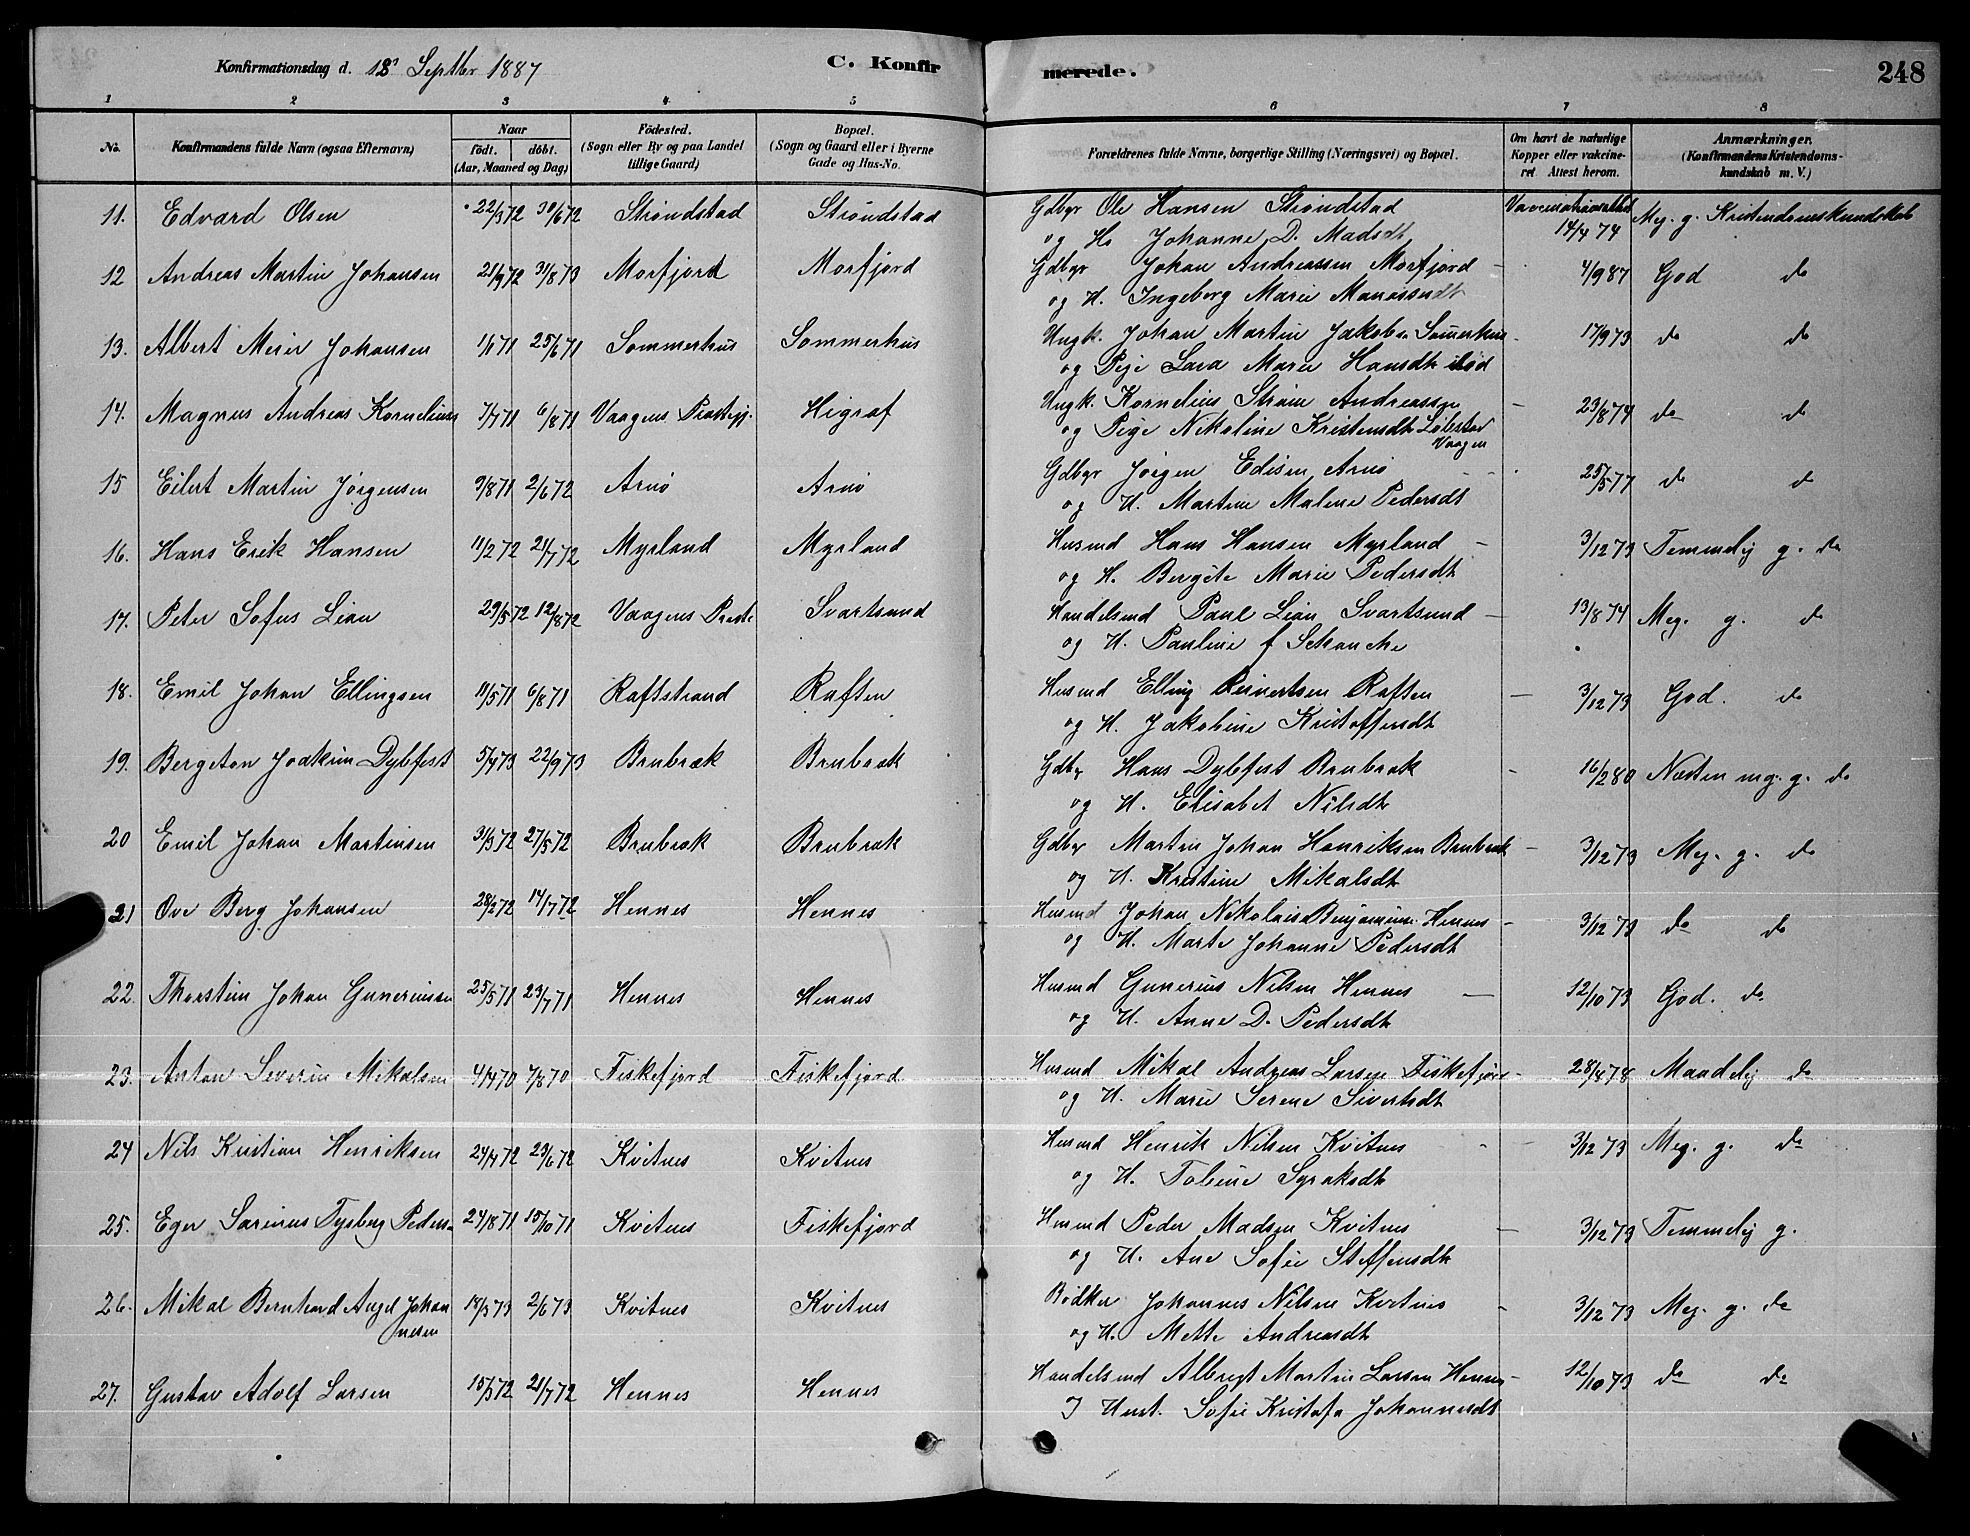 Konfirmationsdag d. 18' Septbr 1887 C. Konfirmerede. 248
1 2 3 4 5 6 7 8
No. Konfirmandens fulde Navn (ogsaa Efternavn) Naar födt. döbt. (Aar, Maaned og Dag) Födested. (Sogn eller By og paa Landet tillige Gaard) Bopæl. (Sogn og Gaard eller i Byerne Gade og Hus-No. Forældrenes fulde Navne, borgerlige Stilling (Næringsvei) og Bopæl. Om havt de naturlige Kopper eller vakcineret. Attest herom. Anmærkninger. (Konfirmandens Kristendomskundskab m. V.)
11. Edvard Olsen 22/3 72 30/6 72 Strøndstad Strøndstad Gdbgr Ole Hansen Strøndstad
og H. Johanne D. Madsdt 14/4 74 Meg. g. Kristendomskundskab
12 Andreas Martin Johansen 21/9 72 31/8 73 Morfjord Morfjord Gdbgr Johan Andreassen Morfjord 4/9 87 God do
og H. Ingeborg Marie
13. Albert Meier Johansen 1/1 71 25/6 71 Sommerhus Sommerhus Ungk. Johan Martin Jakobsn 17/9 73 do do
og Pige Lava Marie Hansdt
14. Magnus Andreas Kornelius 7/7 71 6/8 71 Vaagens Higraf Ungk. Kornelius Strøm 23/8 74 do do
og Pige Nikoline Kristensdt
Vaagen
15 Eilert Martin Jørgensen 9/8 71 2/6 72 Arnø Arnø Gdbgr Jørgen Edisen Arnø 25/5 77 do do
og H. Martine Malene Pedersdt
16. Hans Erik Hansen 11/2 72 21/7 72 Myrland Myrland Husmd Hans Hansen Myrland 3/12 73 Temmelig g. do
og H. Bergite Marie Pedersdt
17. Peter Sofus Lian 29/5 72 12/8 72 Vaagens Svartsund Handelsmd Paul Lian Svartsund 13/8 74 Meg. g. do
og H. Pauline f Schanche
18. Emil Johan Ellingsen 11/5 71 6/8 71 Raftstrand Raften Husmd Elling Raften 3/12 73 God. do
og H. Jakobine Kristoffersdt
19. Bergeton Joakim Dybfest 5/4 73 22/9 73 Brubræk Brubræk Gdbgr Hans Dybfest Brubræk 16/2 80 Næsten meg. g. do
og H. Elisabet Nilsdt
20 Emil Johan Martinsen 31/3 72 27/5 72 Brubræk Brubræk Gdbgr Martin Johan Henriksen Brubræk 3/12 73 Meg. g. do
og H. Kristine Mikalsdt
21 Ove Berg Johansen 28/2 72 14/7 72 Hennes Hennes Husmd Johan Nikolai Hennes 3/12 73 do do
og H. Marte Johanne Pedersdt
22. Thorstein Johan Gunerius 25/5 71 23/7 71 Hennes Hennes Husmd Gunerius Nilsen Hennes 12/10 73 God. do
og H. Anne D. Pedersdt
23. Anton Severin Mikalsen 4/4 70 7/8 70 Fiskefjord Fiskefjord Husmd Mikal Andreas Larsen Fiskefjord 28/4 78 Maadelig do
og H. Marie Serene Sivertsdt
24 Nils Kristian Henriksen 24/4 72 23/6 72 Kvitnes Kvitnes Husmd Henrik Nilsen Kvitnes 3/12 73 Meg. g. do
og H. Tobine Syraksdt
25. Eger Sarinus Tysberg Peders 24/8 71 15/10 71 Kvitnes Fiskefjord Husmd Peder Madsen Kvitnes 3/12 73 Temmelig g.
og H. Ane Sofie Steffensdt
26. Mikal Berntend Angel Johannesen 18/3 73 2/6 73 Kvitnes Kvitnes Bødker Johannes Nilsen Kvitnes 3/12 73 Meg. g. do
og H. Mette Andreasdt
27. Gustav Adolf Larsen 10/3 72 21/7 72 Hennes Hennes Handelsmd Albregt Martin Larsen Hennes 12/10 73 do do
Sofie Kristofa Johannesdt